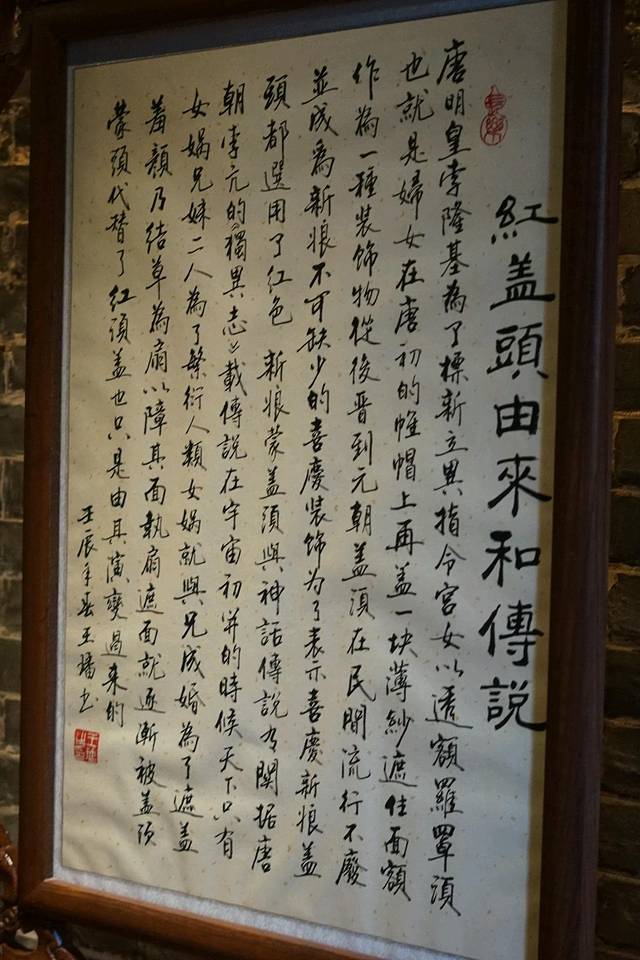 紅盖頭由來和傳說
唐明皇李隆基為了標新立異指令宮女以透額羅罩頭
也就是婦女在唐初的帷帽上再盖一块薄紗遮住面額
作為一種装飾物從後晋到元朝盖頭在民間流行不廢
並成為新娘不可缺少的喜慶装飾为了表示喜慶新娘盖
頭都選用了红色 新娘蒙盖頭與神話傳說有関据唐
朝李亢的《獨異志》載傳說在宇宙初开的時候天下只有
女媧兄妹二人為了繁衍人類女媧就與兄成婚為了遮盖
羞顔乃结草為扇以障其面執扇遮面就逐漸被盖頭
蒙頭代替了红頭盖也只是由其演變過来的
壬辰年春王璠书